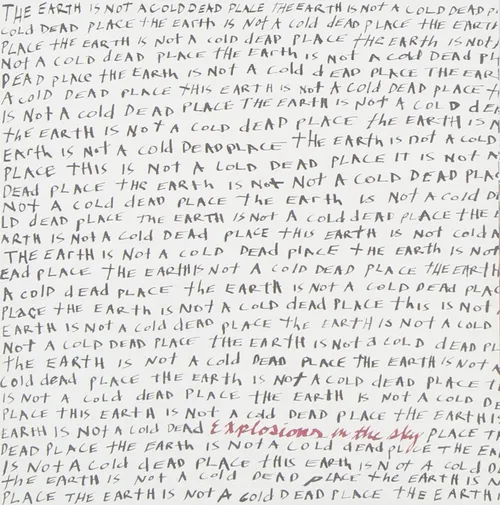 THE EARTH IS NOT A COLD DEAD PLACE THE EARTH IS NOT A COLD DEAD P
COLD DEAD PLACE THE EARTH IS NOT A COLD DEAD PLACE THE EARTH
PLACE THE EARTH IS NOT A COLD DEAD PLACE THE EARTH IS NOT
NOT A COLD DEAD PLACE THE EARTH IS NOT A COLD DEAD PL
DEAD PLACE THE EARTH IS NOT A COLD DEAD PLACE THE EAR
A COLD DEAD PLACE THIS EARTH IS NOT A COLD DEAD PLACE
IS NOT A COLD DEAD PLACE THE EARTH IS NOT A COLD DE
THE EARTH IS NOT A COLD DEAD PLACE THE EARTH IS N
EARTH IS NOT A COLD DEAD PLACE THE EARTH IS NOT A COLD
PLACE THIS IS NOT A COLD DEAD PLACE IT IS NOT A
DEAD PLACE THE EARTH IS NOT NOT A COLD DEAD PLAC
NOT A COLD DEAD PLACE THE EARTH IS NOT A COLD D
LD DEAD PLACE THE EARTH IS NOT A COLD DEAD PLACE THE
ARTH IS NOT A COLD DEAD PLACE THIS EARTH IS NOT COLD A
THE EARTH IS NOT A COLD DEAD PLACE THE EARTH IS NOT
EAD PLACE THE EARTH IS NOT A COLD DEAD PLACE THE EARTH
A COLD DEAD PLACE THE EARTH IS NOT A COLD DEAD PLAC
PLACE THE EARTH IS NOT A COLD DEAD PLACE THIS IS NOT
EARTH IS NOT A COLD DEAD PLACE THE EARTH IS NOT A COLD
NOT A COLD DEAD PLACE THE EARTH IS NOT A COLD DEAD PLA
THE EARTH IS NOT A COLD DEAD PLACE THE EARTH IS NOT A
COLD DEAD PLACE THE EARTH IS NOT A COLD DEAD PLACE T
IS NOT A COLD DEAD PLACE THE EARTH IS NOT A COLD DE
PLACE THIS EARTH IS NOT A COLD DEAD PLACE THE EARTH IS
EARTH IS NOT A COLD DEAD Explosions in the sky PLACE T
DEAD PLACE THE EARTH IS NOT A COLD DEAD PLACE THE EA
IS NOT A COLD DEAD PLACE THIS EARTH IS NOT A COLD D
THE EARTH IS NOT A COLD DEAD PLACE THE EARTH IS N
PLACE THE EARTH IS NOT A COLD DEAD PLACE THE EARTH